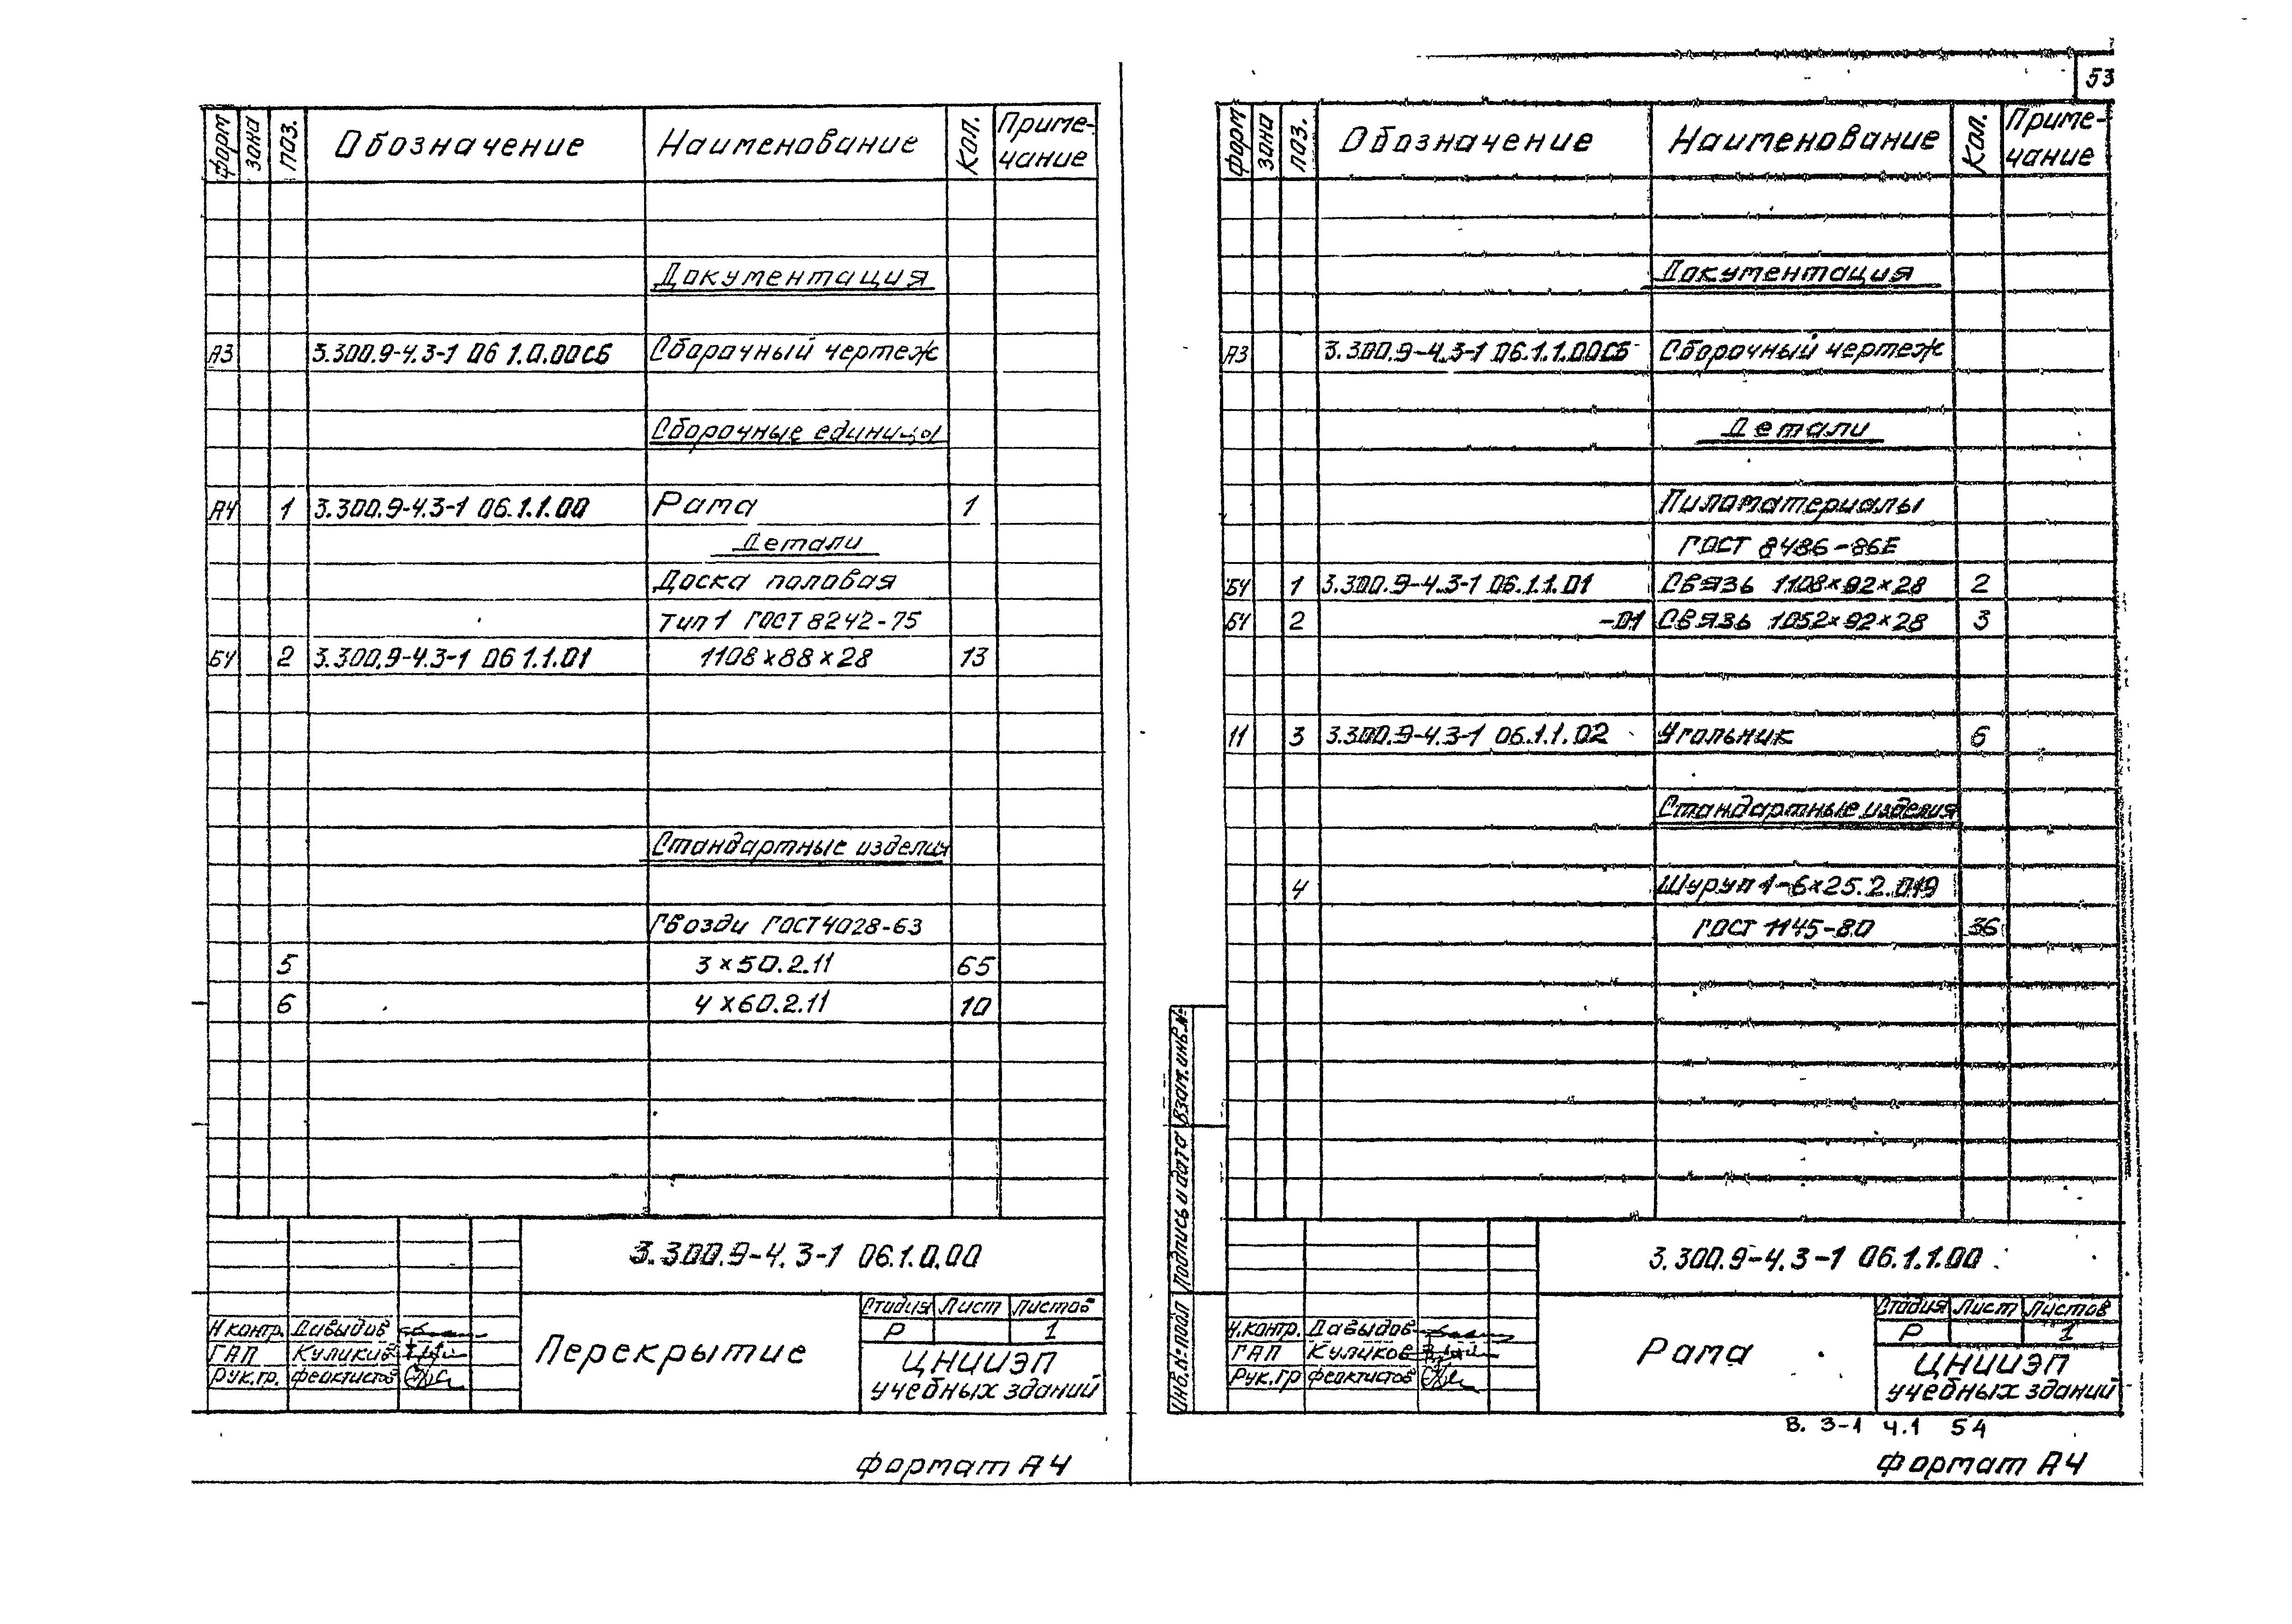 53
Форм Зона Поз. Обозначение Наименование Кол. Приме-
чание
Документация
А3 3.300.9-4.3-1 06 1.0.00СБ Сборочный чертеж
Сборочные единицы
А4 1 3.300.9-4.3-1 06.1.1.00 Рама 1
Детали
Доска половая
тип 1 ГОСТ 8242-75
БЧ 2 3.300.9-4.3-1 06 1.1.01 1108×88×28 13
Стандартные изделия
Гвозди ГОСТ 4028-63
5 3×50.2.11 65
6 4×60.2.11 10
3.300.9-4.3-1 06.1.0.00
Н контр. Давыдов
ГАП Куликов
Рук.гр. Феоктистов
Перекрытие
Стадия Лист Листов
Р 1
ЦНИИЭП
учебных зданий
Формат А4
Форм Зона Поз. Обозначение Наименование Кол. Приме-
чание
Документация
А3 3.300.9-4.3-1 06.1.1.00СБ Сборочный чертеж
Детали
Пиломатериалы
ГОСТ 8486-86Е
БЧ 1 3.300.9-4.3-1 06.1.1.01 Связь 1108×92×28 2
БЧ 2 -01 Связь 1052×92×28 3
11 3 3.300.9-4.3-1 06.1.1.02 Угольник 6
Стандартные изделия
4 Шуруп 1-6×25.2.019
ГОСТ 1145-80 36
Инв.№ подл Подпись и дата Взам.инв.№
3.300.9-4.3-1 06.1.1.00
Н.контр. Давыдов
ГАП Куликов
Рук.гр Феоктистов
Рама
Стадия Лист Листов
Р 1
ЦНИИЭП
учебных зданий
В. 3-1 ч.1 54
Формат А4